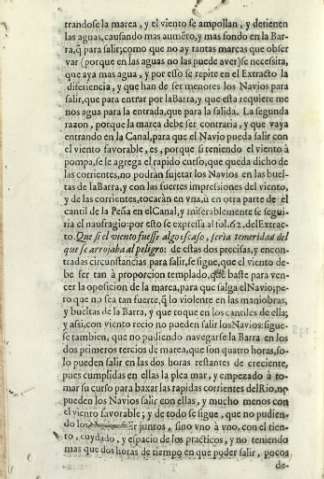 trandose la marea, y el viento se ampollan, y detienen
las aguas, causando mas aumẽro, y mas fondo en la Bar-
ra, q̃ para salir; como que no ay tantas marcas que obser
var (porque en las aguas no las puede aver) se necessita,
que aya mas agua, y por esso se repite en el Extracto la
diferiencia, y que han de ser menores los Navios para
salir, que para entrar por la Barra, y que esta requiere me
nos agua para la entrada, que para la salida. La segunda
razon, porque la marea debe ser contraria, y que vaya
entrando en la Canal, para que el Navio pueda salir con
el viento favorable, es, porque si teniendo el viento à
pompa, se le agrega el rapido curso, que queda dicho de
las corrientes, no podràn sujetar los Navios en las buel-
tas de la Barra, y con las fuertes impressiones del viento,
y de las corrientes, tocaràn en vna, ù en otra parte de el
cantil de la Peña en el Canal, y miserablemente se segui-
ria el naufragio: por esto se expressa al fol. 62. del Extrac-
to. Que si el viento fuesse algo escaso, seria temeridad del
que se arrojaba al peligro: de estas dos precisas, y encon-
tradas circunstancias para salir, se sigue, que el viento de-
be ser tan à proporcion templado, que baste para ven-
cer la oposicion de la marea, para que salga el Navio; pe-
ro que no sea tan fuerte, q̃ lo violente en las maniobras,
y bueltas de la Barra, y que toque en los cantiles de ella;
y assi, con viento recio no pueden salir los Navios: sigue-
se tambien, que no pudiendo navegarse la Barra en los
dos primeros tercios de marea, que son quatro horas, so-
lo pueden salir en las dos horas restantes de creciente,
pues cumplidas en ellas la plea mar, y empezado à to-
mar su curso para baxar las rapidas corrientes del Rio, no
pueden los Navios salir con ellas, y mucho menos con
el viento favorable; y de todo se sigue, que no pudien-
do los salir juntos, sino vno à vno, con el tien-
to, cuydado, y espacio de los practicos, y no teniendo
mas que dos horas de tiempo en que poder salir, pocos
de-